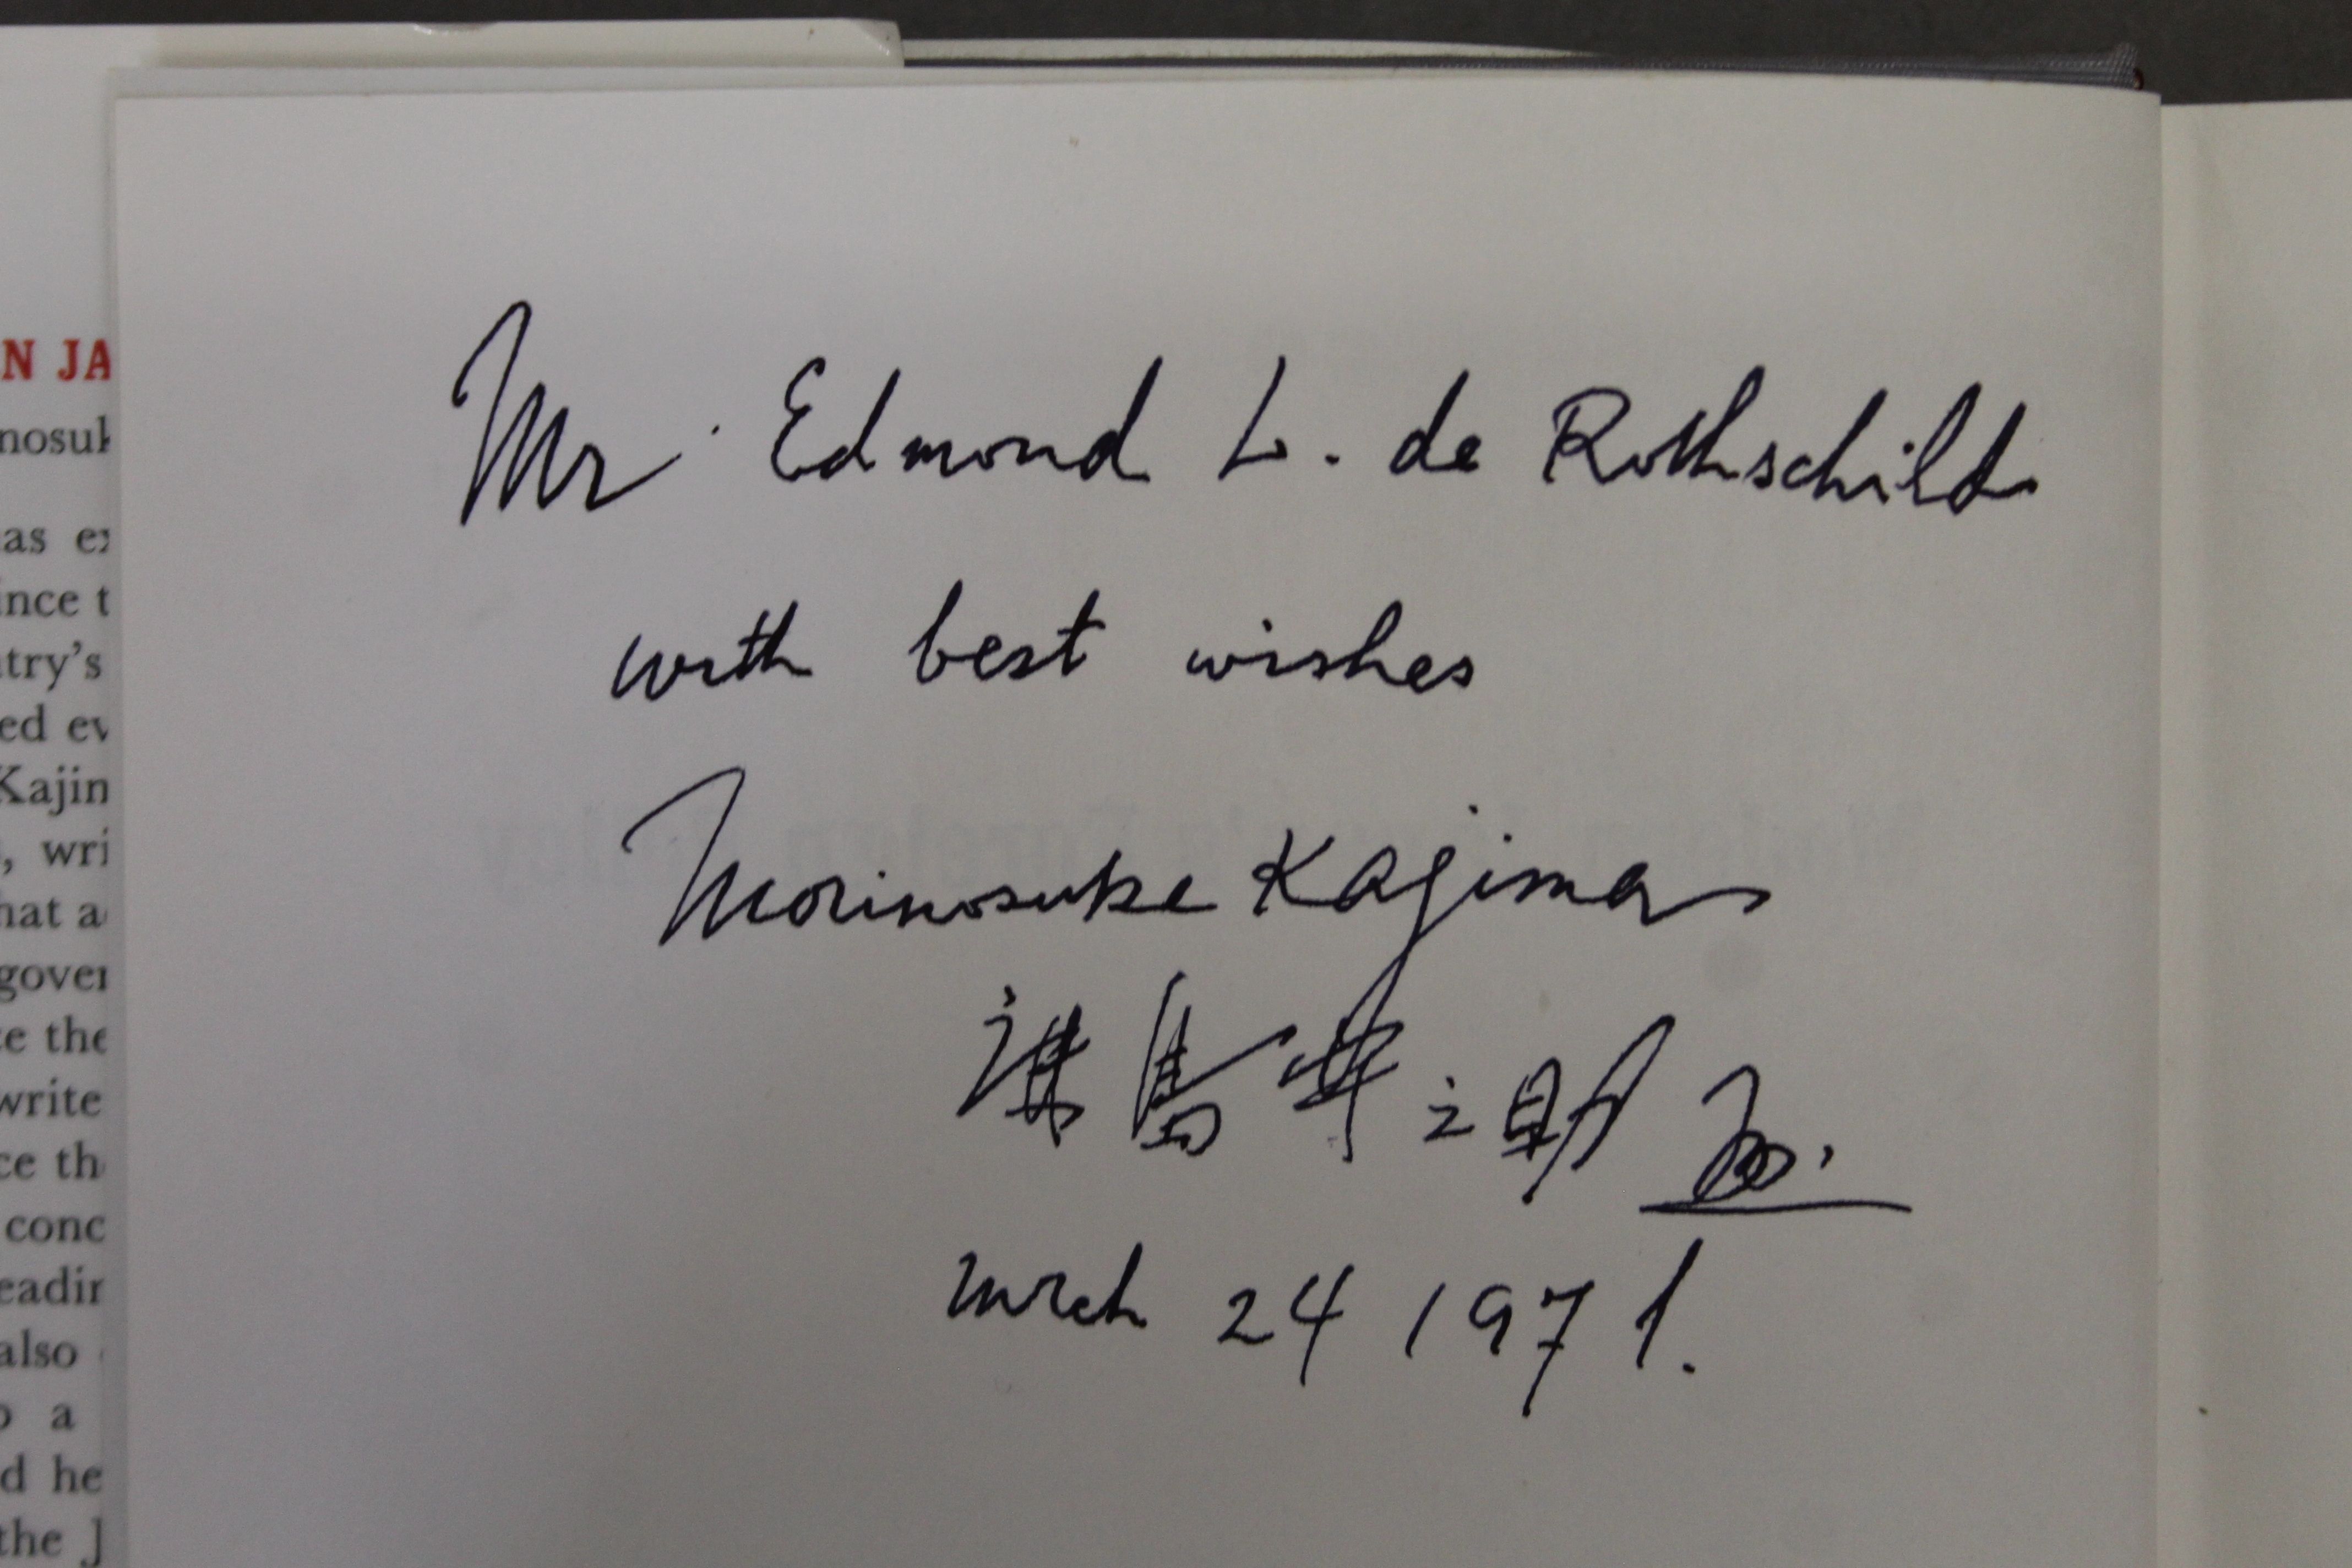 N JA
nosuk
as ex
ince t
ntry's
ed ev
Kajim
, wri
hat a
gover
e the
write
ce th
conc
eadin
also
o a
d he
the J
Mr. Edmond L. de Rothschild
with best wishes
Morinosuke Kajima
鹿島守之助
Mrch 24 1971.